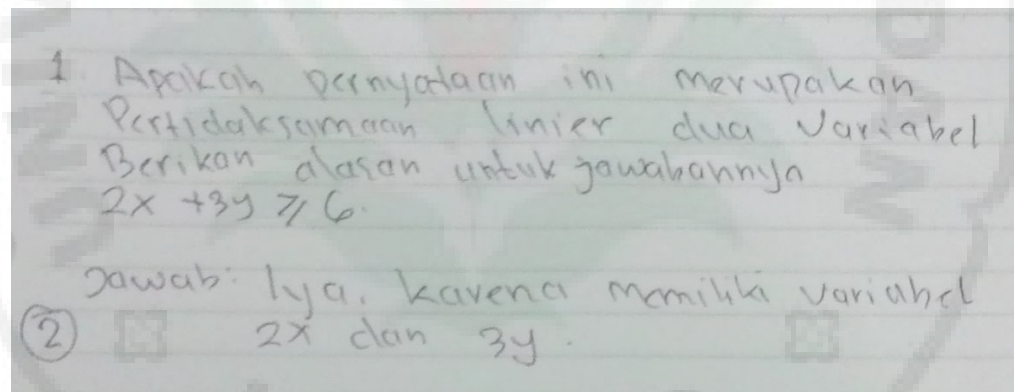 1. Apakah pernyataan ini merupakan
Pertidaksamaan linier dua Variabel
Berikan alasan untuk jawabannya
2x + 3y ≥ 6.
Jawab: Iya, karena memiliki variabel
② 2x dan 3y.